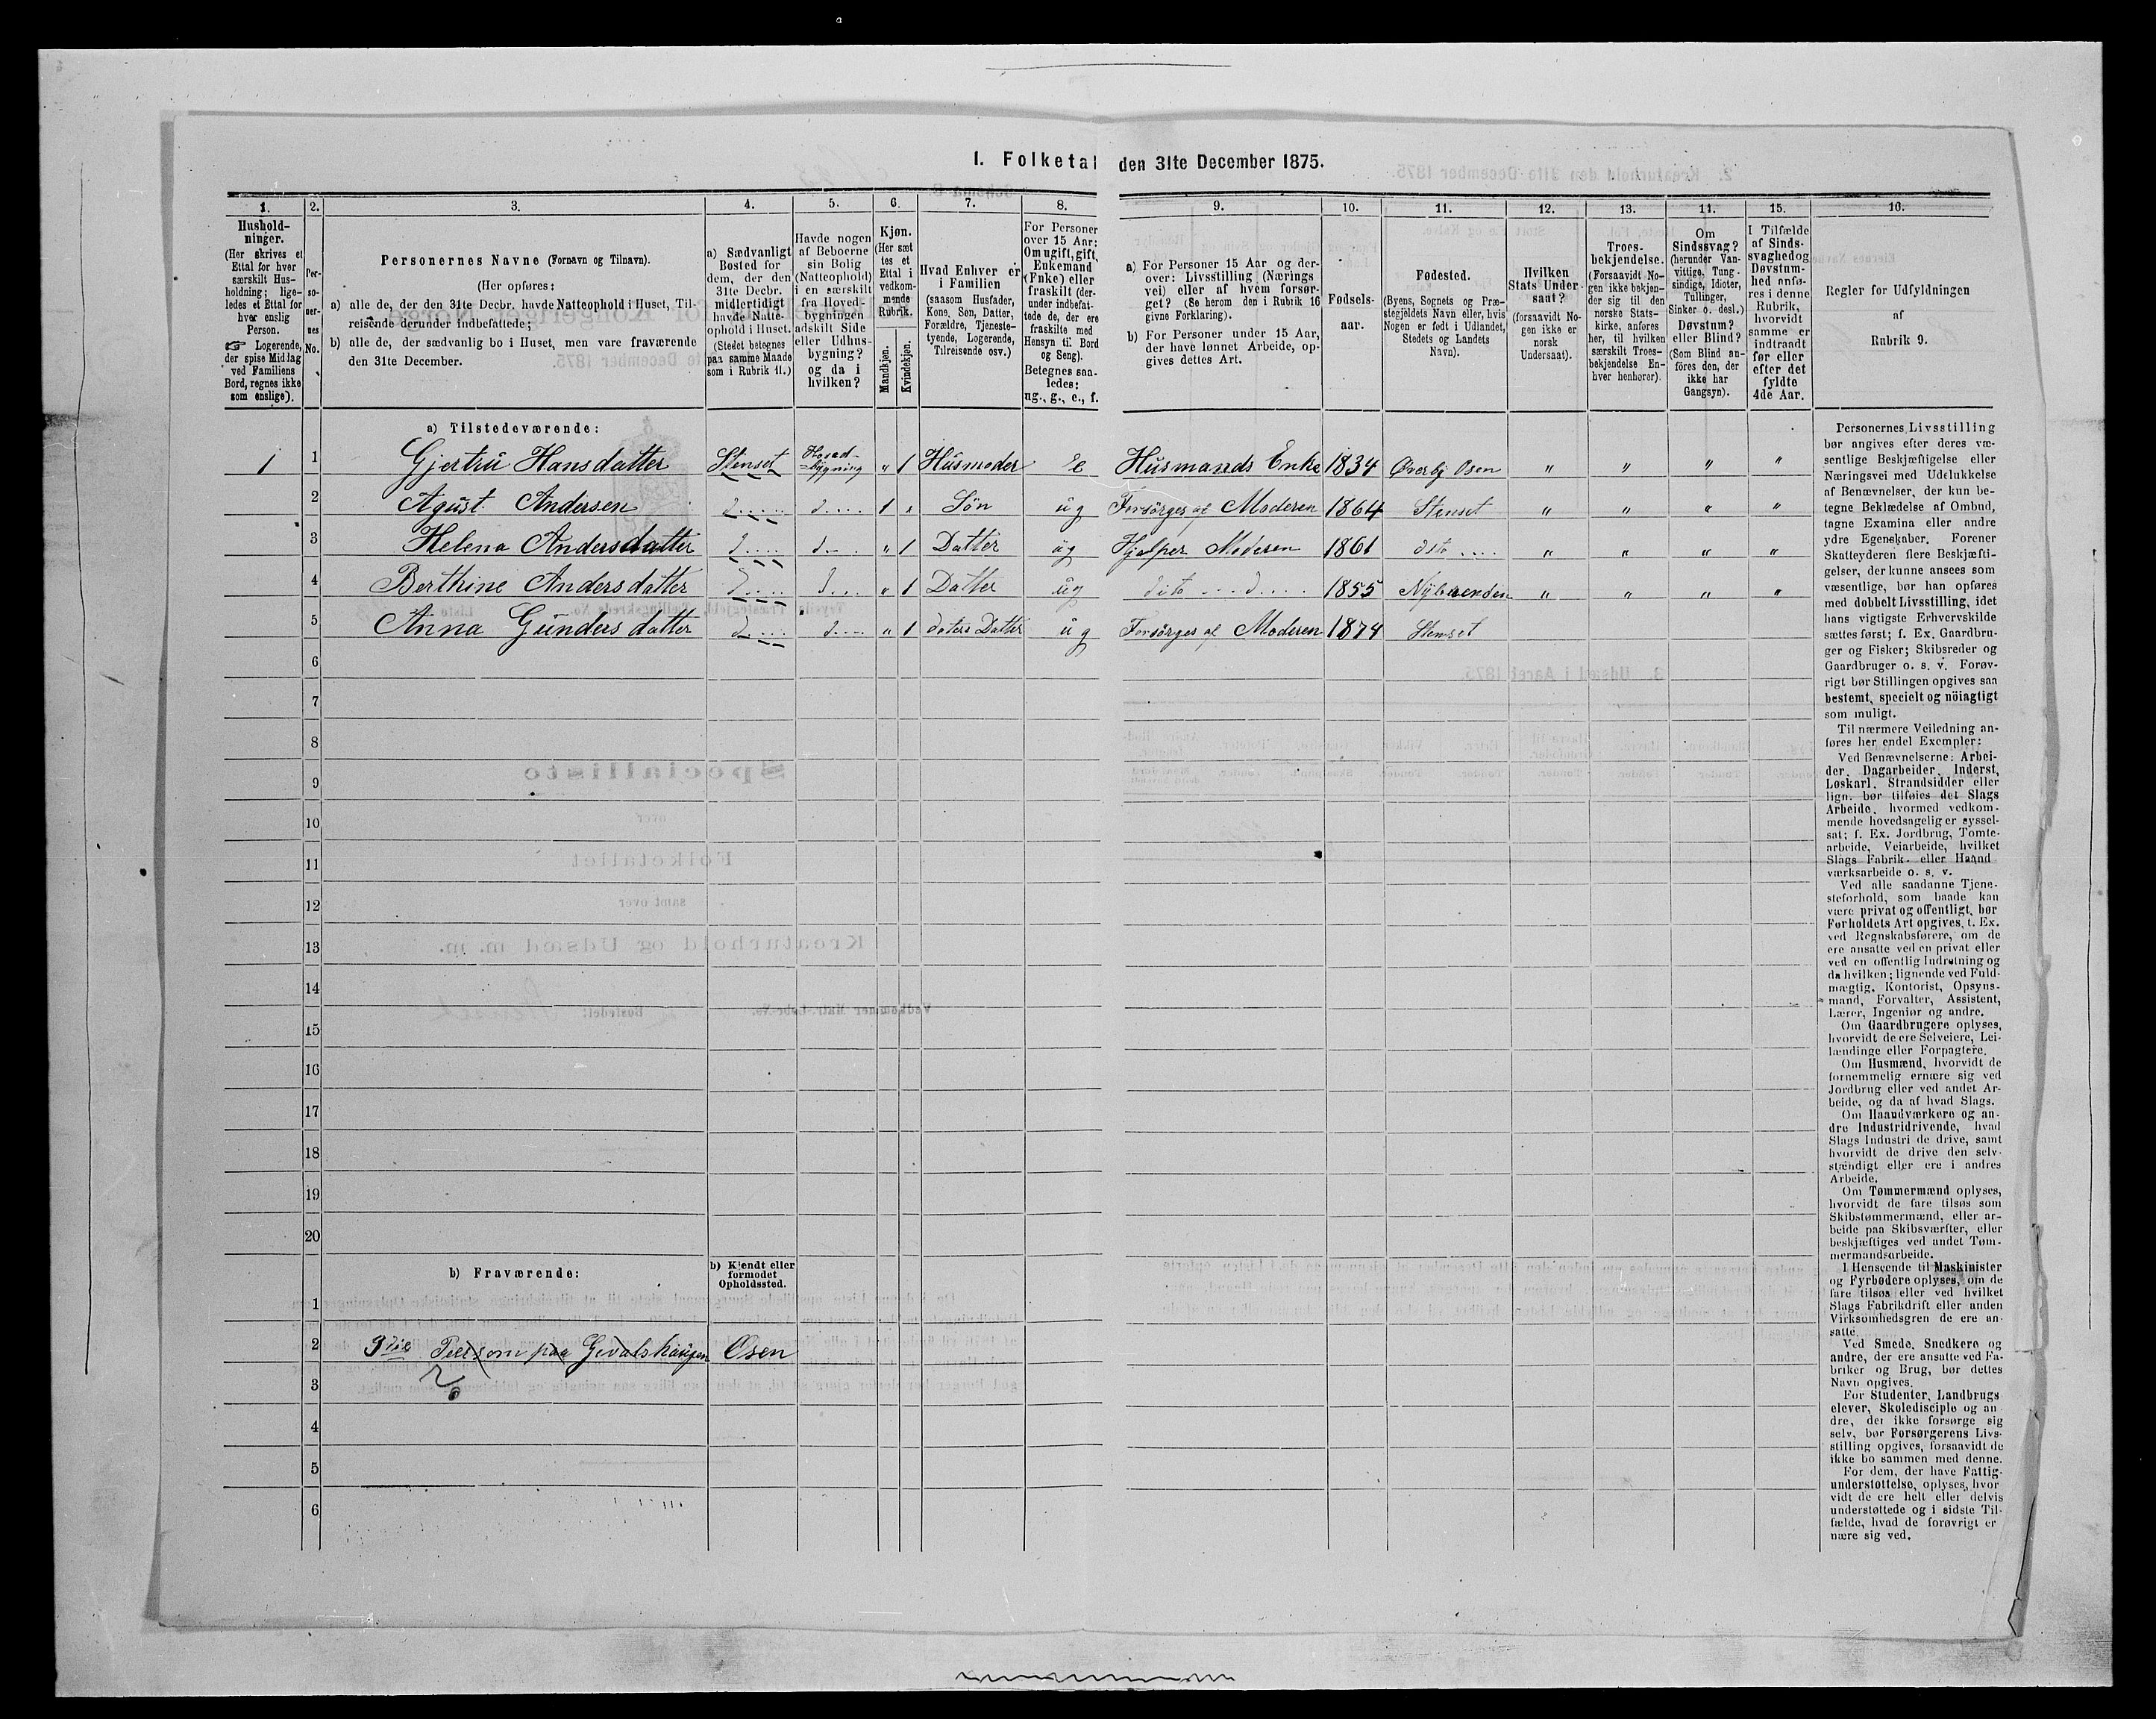 I. Folketal den 31te December 1875.
1.
Hushold-
ninger.
(Her skrives et
Ettal for hver
særskilt Hus-
holdning; lige-
ledes et Ettal for
hver enslig
Person.
☞ Logerende,
der spise Middag
ved Familiens
Bord, regnes ikke
som enslige).
2.
Per-
so-
ner-
nes
No.
3.
Personernes Navne (Fornavn og Tilnavn).
(Her opføres:
a) alle de, der den 31te Decbr. havde Natteophold i Huset, Til-
reisende derunder indbefattede;
b) alle de, der sædvanlig bo i Huset, men vare fraværende
den 31te December.
4.
a) Sædvanligt
Bosted for
dem, der den
31te Decbr.
midlertidigt
havde Natte-
ophold i Huset.
(Stedet betegnes
paa samme Maade
som i Rubrik 11.)
5.
Havde nogen
af Beboerne
sin Bolig
(Natteophold)
i en særskilt
fra Hoved-
bygningen
adskilt Side
eller Udhus-
bygning?
og da i
hvilken?
6.
Kjøn.
(Her sæt
tes et
Ettal i
vedkom-
mende
Rubrik.
Mandkjøn.
Kvindekjøn.
7.
Hvad Enhver er
i Familien
(saasom Husfader,
Kone, Søn, Datter,
Forældre, Tjeneste-
tyende, Logerende,
Tilreisende osv.)
8.
For Personer
over 15 Aar:
Om ugift, gift,
Enkemand
(Enke) eller
fraskilt (der-
under indbefat-
tede de, der ere
fraskilte med
Hensyn til Bord
og Seng).
Betegnes saa-
ledes:
ug., g., e., f.
9.
a) For Personer 15 Aar og der-
over: Livsstilling (Nærings
vei) eller af hvem forsør-
get? (Se herom den i Rubrik 16
givne Forklaring).
b) For Personer under 15 Aar,
der have lønnet Arbeide, op-
gives dettes Art.
10.
Fødsels-
aar.
11.
Fødested.
(Byens, Sognets og Præ-
stegjeldets Navn eller, hvis
Nogen er født i Udlandet,
Stedets og Landets
Navn).
12.
Hvilken
Stats Under
saat?
(forsaavidt No-
gen ikke er
norsk
Undersaat).
13.
Troes-
bekjendelse.
(Forsaavidt No-
gen ikke bekjen-
der sig til den
norske Stats-
kirke, anføres
her, til hvilken
særskilt Troes-
bekjendelse En-
hver henhører).
14.
Om
Sindssvag?
(herunder Van-
vittige, Tung-
sindige, Idioter,
Tullinger,
Sinker o. desl.)
Døvstum?
eller Blind?
(Som Blind an-
föres den, der
ikke har
Gangsyn).
15.
I Tilfælde
af Sinds-
svaghed og
Døvstum-
hed anfø-
res i denne
Rubrik,
hvorvidt
samme er
indtraadt
før eller
efter det
fyldte
4de Aar.
16.
Regler for Udfyldningen
af
Rubrik 9.
a) Tilstedeværende:
1 1 Gjertru Hansdatter Stenset Hoved-bygning " 1 Husmoder E Husmands Enke 1834 Øverby Osen " " " "
2 Agust Andersen d 1 " Sön ug Forsörges af Moderen 1864 Stenset " " " "
3 Helena Andersdatter d d " 1 Datter ug Hjelper Moderen 1861 dito " " " "
4 Berthine Andersdatter d d " 1 Datter ug dito d 1855 " " " "
5 Anna Gunders datter d d " 1 Datter ug Forsörges af Moderen 1874 Stenset
6
7
8
9
10
11
12
13
14
15
16
17
18
19
20
b) Fraværende:
b) Kjendt eller
formodet
Opholdssted.
1
2 som paa Osen
3
4
5
6
Personernes Livsstilling
bør angives efter deres væ-
sentlige Beskjæftigelse eller
Næringsvei med Udelukkelse
af Benævnelser, der kun be-
tegne Beklædelse af Ombud,
tagne Examina eller andre
ydre Egenskaber. Forener
Skatteyderen flere Beskjæfti-
gelser, der kunne ansees som
væsentlige, bør han opføres
med dobbelt Livsstilling, idet
hans vigtigste Erhvervskilde
sættes først; f. Ex. Gaardbru-
ger og Fisker; Skibsreder og
Gaardbruger o. s. v. Forøv-
rigt bør Stillingen opgives saa
bestemt, specielt og nöiagtigt
som muligt.
Til nærmere Veiledning an-
føres her endel Exempler:
Ved Benævnelserne: Arbei-
der, Dagarbeider, Inderst,
Løskarl, Strandsidder eller
lign. bør tilføies det Slags
Arbeide, hvormed vedkom-
mende hovedsagelig er syssel-
sat; f. Ex. Jordbrug, Tomte-
arbeide, Veiarbeide, hvilket
Slags Fabrik- eller Haand
værksarbeide o. s. v.
Ved alle saadanne Tjene-
steforhold, som baade kan
være privat og offentligt, bør
Forholdets Art opgives, f. Ex.
ved Regnskabsførere, om de
ere ansatte ved en privat eller
ved en offentlig Indretning og
da hvilken; lignende ved Fuld-
mægtig, Kontorist, Opsyns-
mand, Forvalter, Assistent,
Lærer, Ingeniør og andre.
Om Gaardbrugere oplyses,
hvorvidt de ere Selveiere, Lei-
lændinge eller Forpagtere.
Om Husmænd, hvorvidt de
fornemmelig ernære sig ved
Jordbrug eller ved andet Ar-
beide, og da af hvad Slags.
Om Haandværkere og an-
dre Industridrivende, hvad
Slags Industri de drive, samt
hvorvidt de drive den selv-
stændigt eller ere i andres
Arbeide.
Om Tømmermænd oplyses,
hvorvidt de fare tilsøs som
Skibstømmermænd, eller ar-
beide paa Skibsværfter, eller
beskjæftiges ved andet Tøm-
mermandsarbeide.
I Henseende til Maskinister
og Fyrbødere oplyses, om de
fare tilsøs eller ved hvilket
Slags Fabrikdrift eller anden
Virksomhedsgren de ere an-
satte.
Ved Smede, Snedkere og
andre, der ere ansatte ved Fa-
briker og Brug, bør dettes
Navn opgives.
For Studenter, Landbrugs
elever, Skoledisciple og an
dre, der ikke forsørge sig
selv, bør Forsørgerens Livs-
stilling opgives, forsaavidt de
ikke bo sammen med denne.
For dem, der have Fattig-
understøttelse, oplyses, hvor
vidt de ere helt eller delvis
understøttede og i sidste Til-
fælde, hvad de forøvrigt er
nære sig ved.